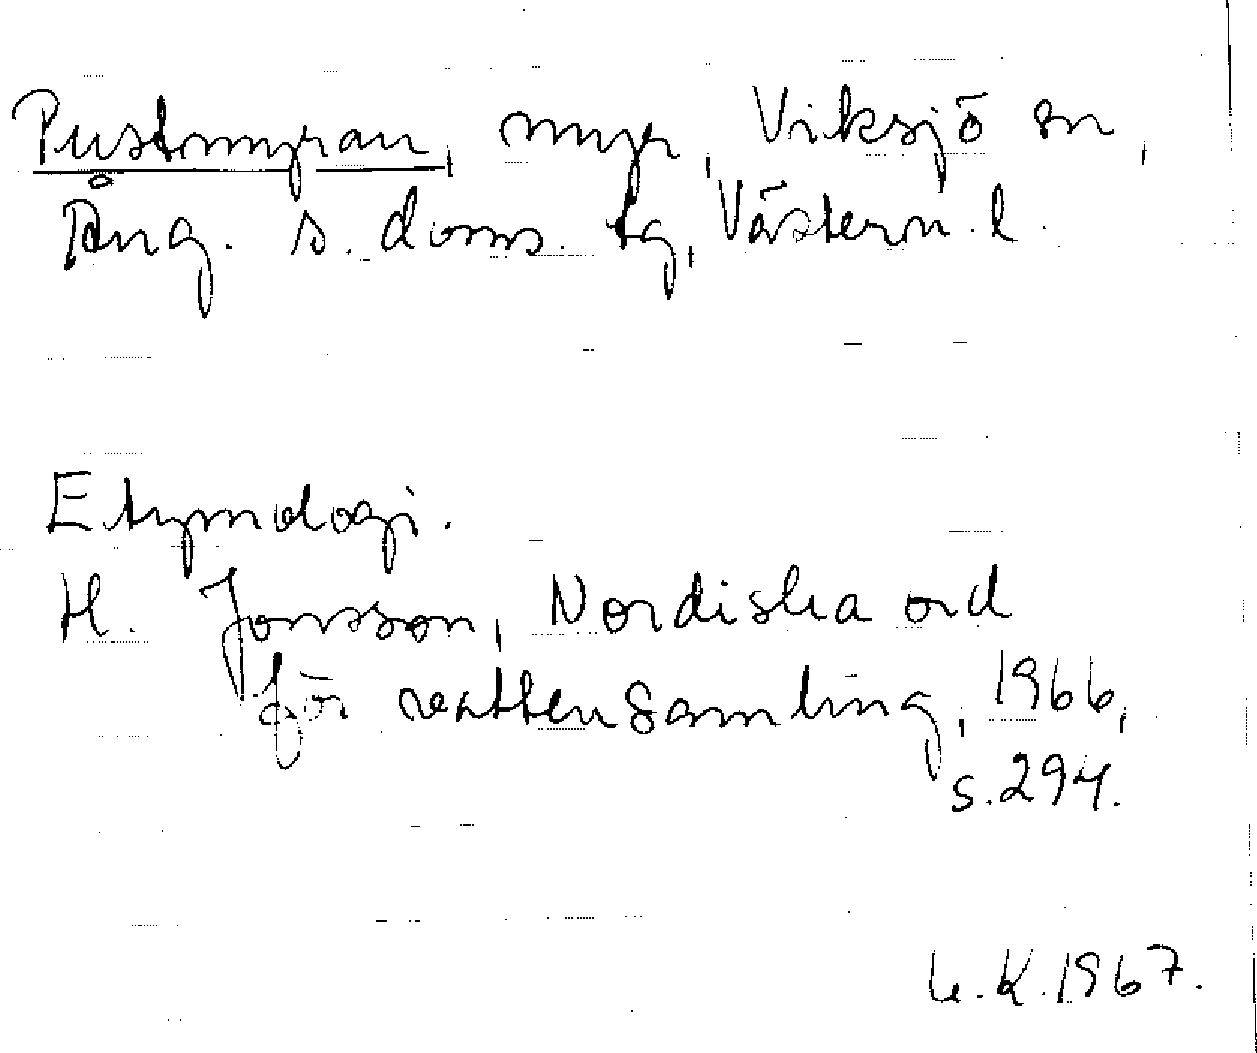 Pustmyran, myr, Viksjö sn,
Ång. s. doms. tg, Västern. l.
Etymologi.
H. Jonsson, Nordiska ord
för vattensamling, 1966,
s. 294.
K. 1967.